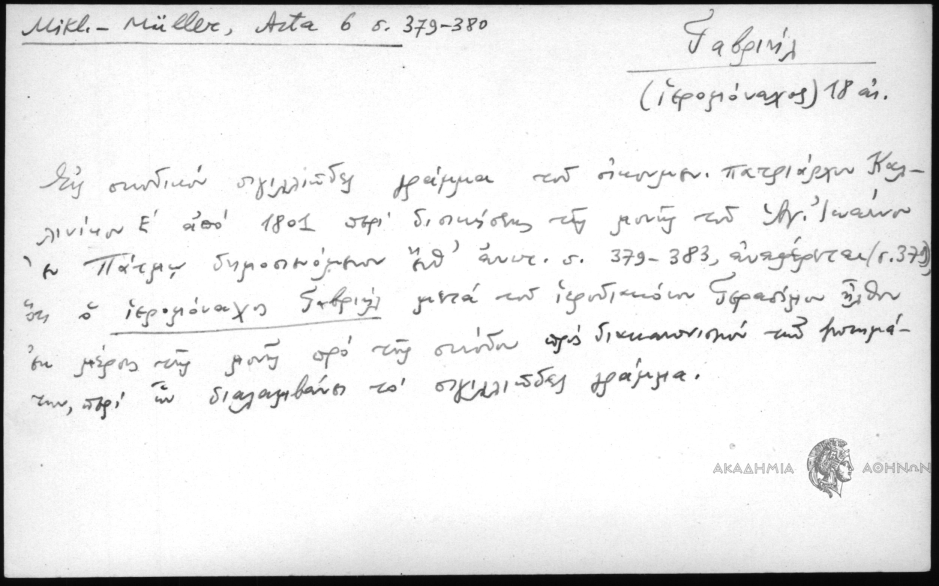 Mikl.- Müller, Acta 6 σ. 379-380
Γαβριήλ
(ἱερομόναχος) 18 αἰ.
Εἰς συνοδικόν σιγιλλιῶδες γράμμα τοῦ οἰκουμεν. πατριάρχου Καλ-
λινίκου Ε΄ ἀπό 1801 περί διοικήσεως τῆς μονῆς τοῦ Ἁγ. Ἰωάννου
ἐν Πάτμῳ δημοσιευόμενον ἔνθ' ἀνωτ. σ. 379-383, ἀναφέρεται (σ. 379),
ὅτι ὁ ἱερομόναχος Γαβριήλ μετά τοῦ ἱεροδιακόνου Γερασίμου ἦλθον
ἐκ μέρους τῆς μονῆς πρό τῆς συνόδου πρός διακανονισμόν τῶν ζητημά-
των, περί ὧν διαλαμβάνει τό σιγιλλιῶδες γράμμα.
ΑΚΑΔΗΜΙΑ ΑΘΗΝΩΝ